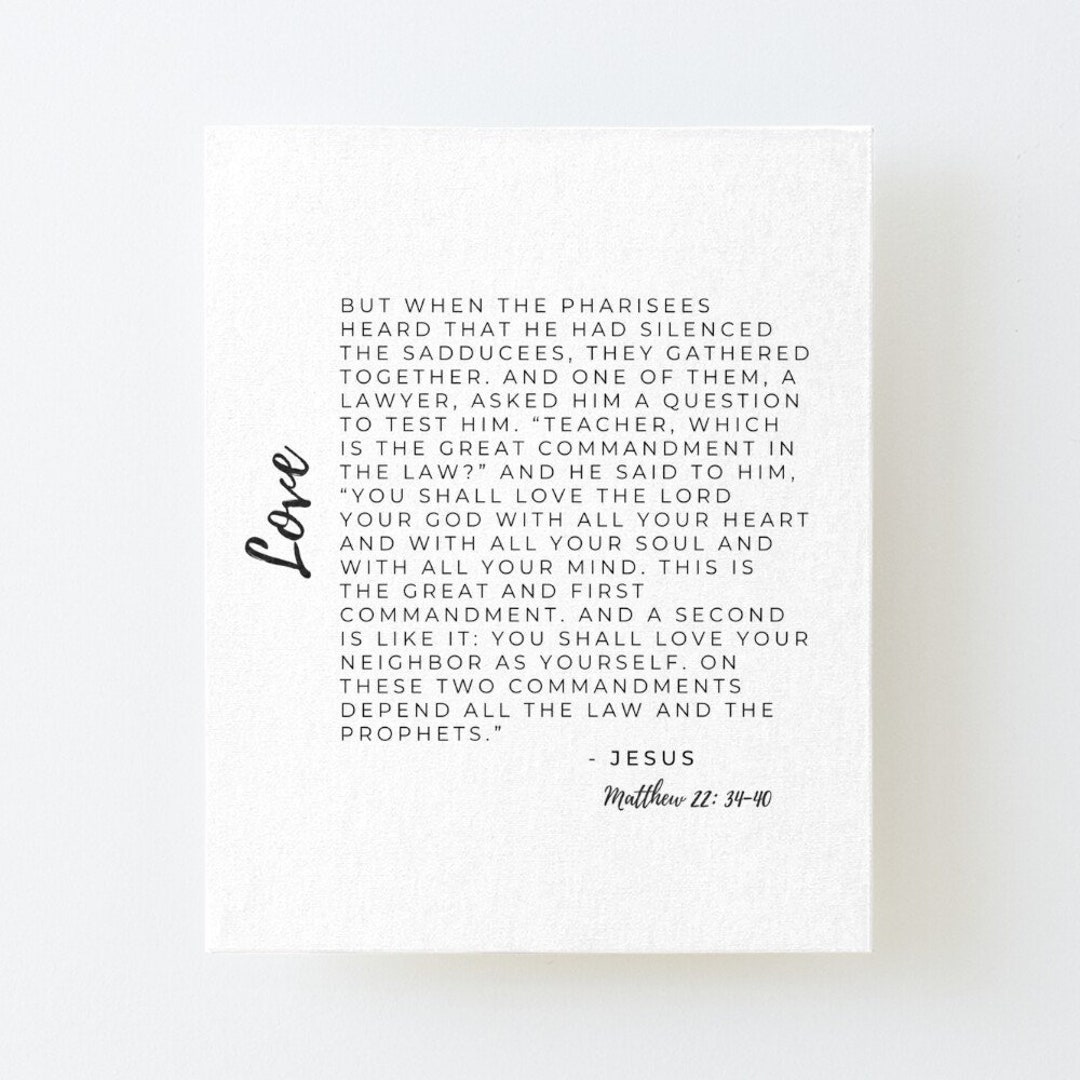 Love
BUT WHEN THE PHARISEES
HEARD THAT HE HAD SILENCED
THE SADDUCEES, THEY GATHERED
TOGETHER. AND ONE OF THEM, A
LAWYER, ASKED HIM A QUESTION
TO TEST HIM. “TEACHER, WHICH
IS THE GREAT COMMANDMENT IN
THE LAW?” AND HE SAID TO HIM,
“YOU SHALL LOVE THE LORD
YOUR GOD WITH ALL YOUR HEART
AND WITH ALL YOUR SOUL AND
WITH ALL YOUR MIND. THIS IS
THE GREAT AND FIRST
COMMANDMENT. AND A SECOND
IS LIKE IT: YOU SHALL LOVE YOUR
NEIGHBOR AS YOURSELF. ON
THESE TWO COMMANDMENTS
DEPEND ALL THE LAW AND THE
PROPHETS.”
- JESUS
Matthew 22: 34-40